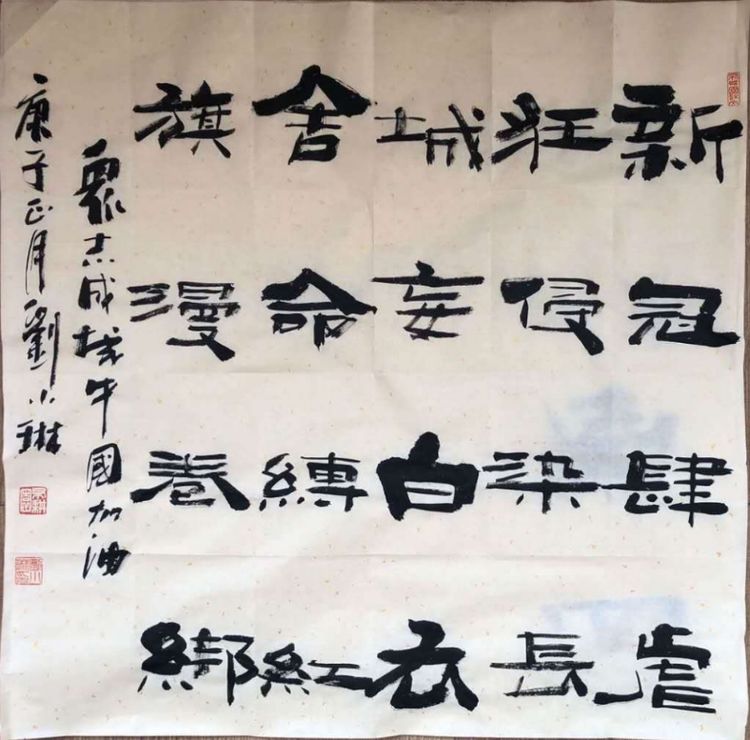 新冠肆虐
狂侵染長
城妄白衣
舍命縛紅
旗漫卷綁
眾志成城中國加油
庚子正月劉小琳